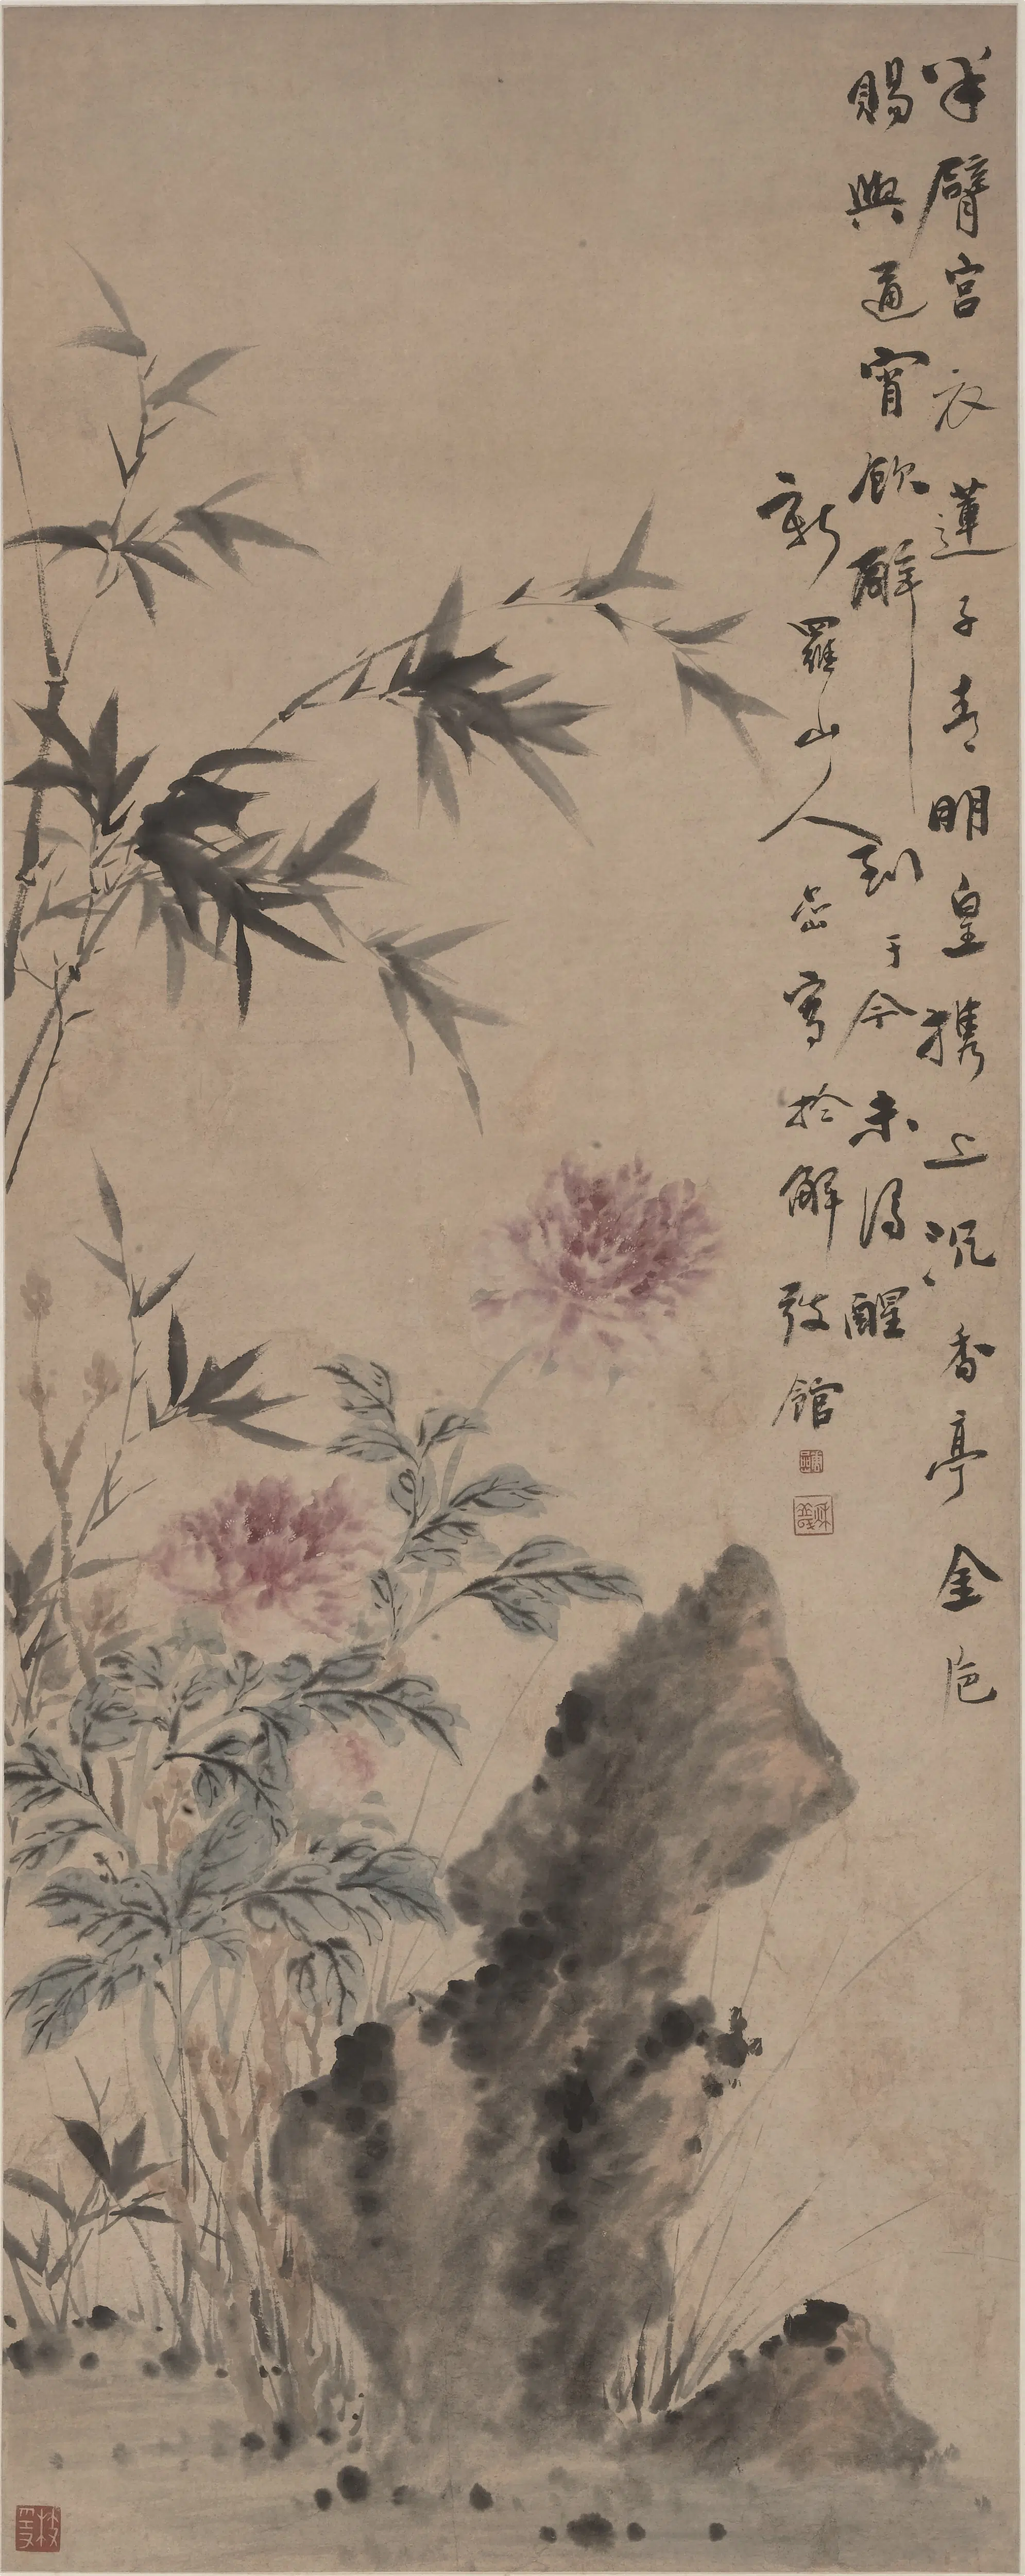 半臂宫衣蓮子青明皇携上沉香亭金卮
賜與通宵飲醉到于今未得醒
新羅山人嵒寫於解弢館